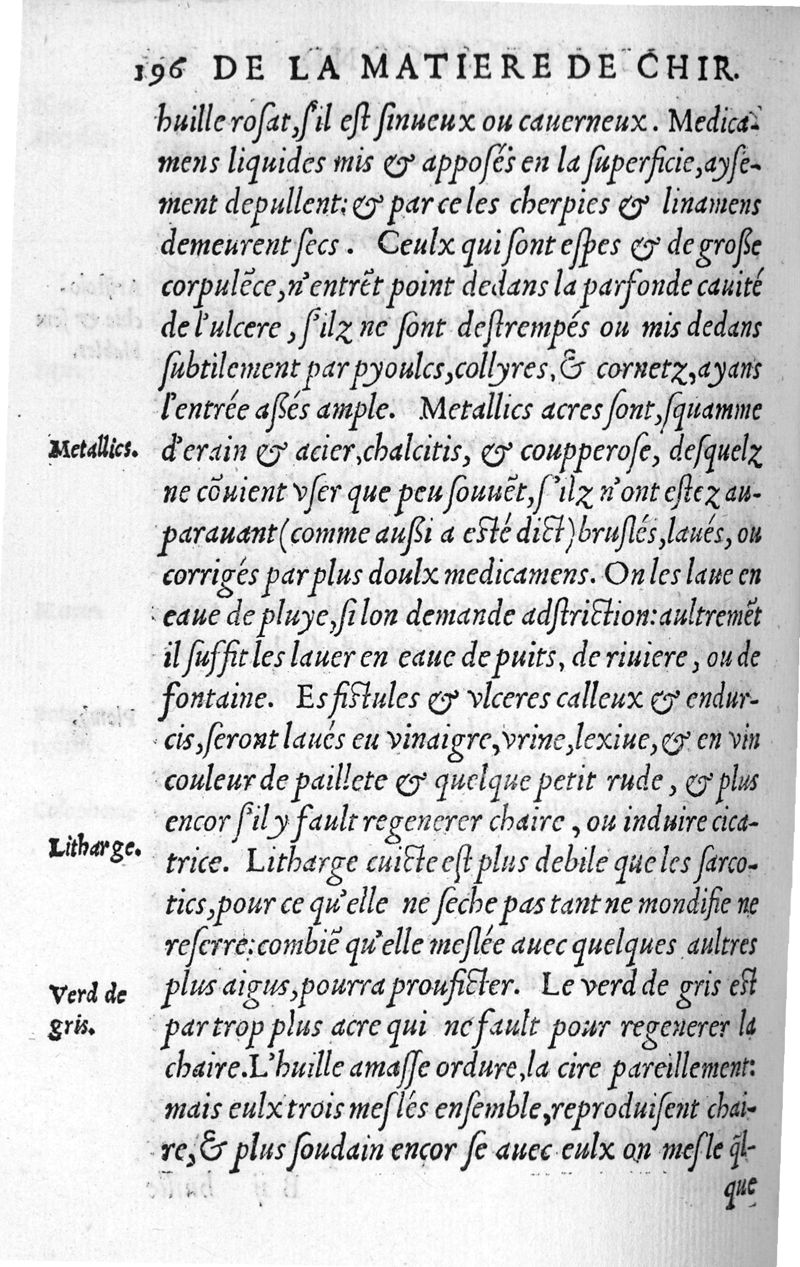 196 DE LA MATIERE DE CHIR.
huille rosat, s'il est sinueux ou cauerneux. Medica-
mens liquides mis & apposés en la superficie, ayse-
ment depullent: & par ce les cherpies & linamens
demeurent secs. Ceulx qui sont espes & de grosse
corpulẽce, n'entrẽt point dedans la parfonde cauité
de l'ulcere, s'ilz ne sont destrempés ou mis dedans
subtilement par pyoulcs, collyres, & cornetz, ayans
l'entrée assés ample. Metallics acres sont, squamme
Metallics.
d'erain & acier, chalcitis, & coupperose, desquelz
ne cõuient vser que peu souuẽt, s'ilz n'ont estez au-
parauant (comme aussi a esté dict) bruslés, laués, ou
corrigés par plus doulx medicamens. On les laue en
eaue de pluye, si lon demande adstriction: aultremẽt
il suffit les lauer en eaue de puits, de riuiere, ou de
fontaine. Es fistules & vlceres calleux & endur-
cis, seront laués eu vinaigre, vrine, lexiue, & en vin
couleur de paillete & quelque petit rude, & plus
encor s'il y fault regenerer chaire, ou induire cica-
Litharge.
trice. Litharge cuicte est plus debile que les sarco-
tics, pour ce qu'elle ne seche pas tant ne mondifie ne
reserre: combiẽ qu'elle meslée auec quelques aultres
Verd de
plus aigus, pourra prouficter. Le verd de gris est
gris.
par trop plus acre qui ne fault pour regenerer la
chaire. L'huille amasse ordure, la cire pareillement:
mais eulx trois meslés ensemble, reproduisent chai-
re, & plus soudain encor se auec eulx on mesle q̃l-
que